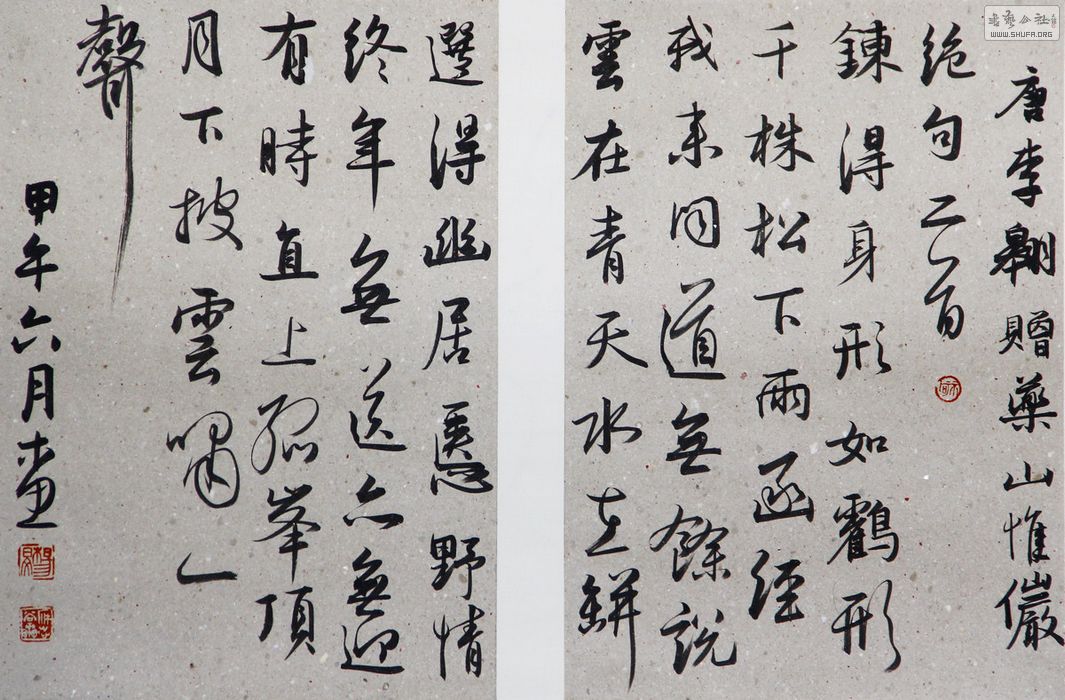 書藝公社
WWW.SHUFA.ORG
唐李翱贈藥山惟儼
絶句二首
鍊得身形如鸖形
千株松下兩函經
我来問道無餘説
雲在青天水在缾
選得幽居愜野情
終年無送亦無迎
有時直上孤峯頂
月下披雲嘯一
聲
甲午六月